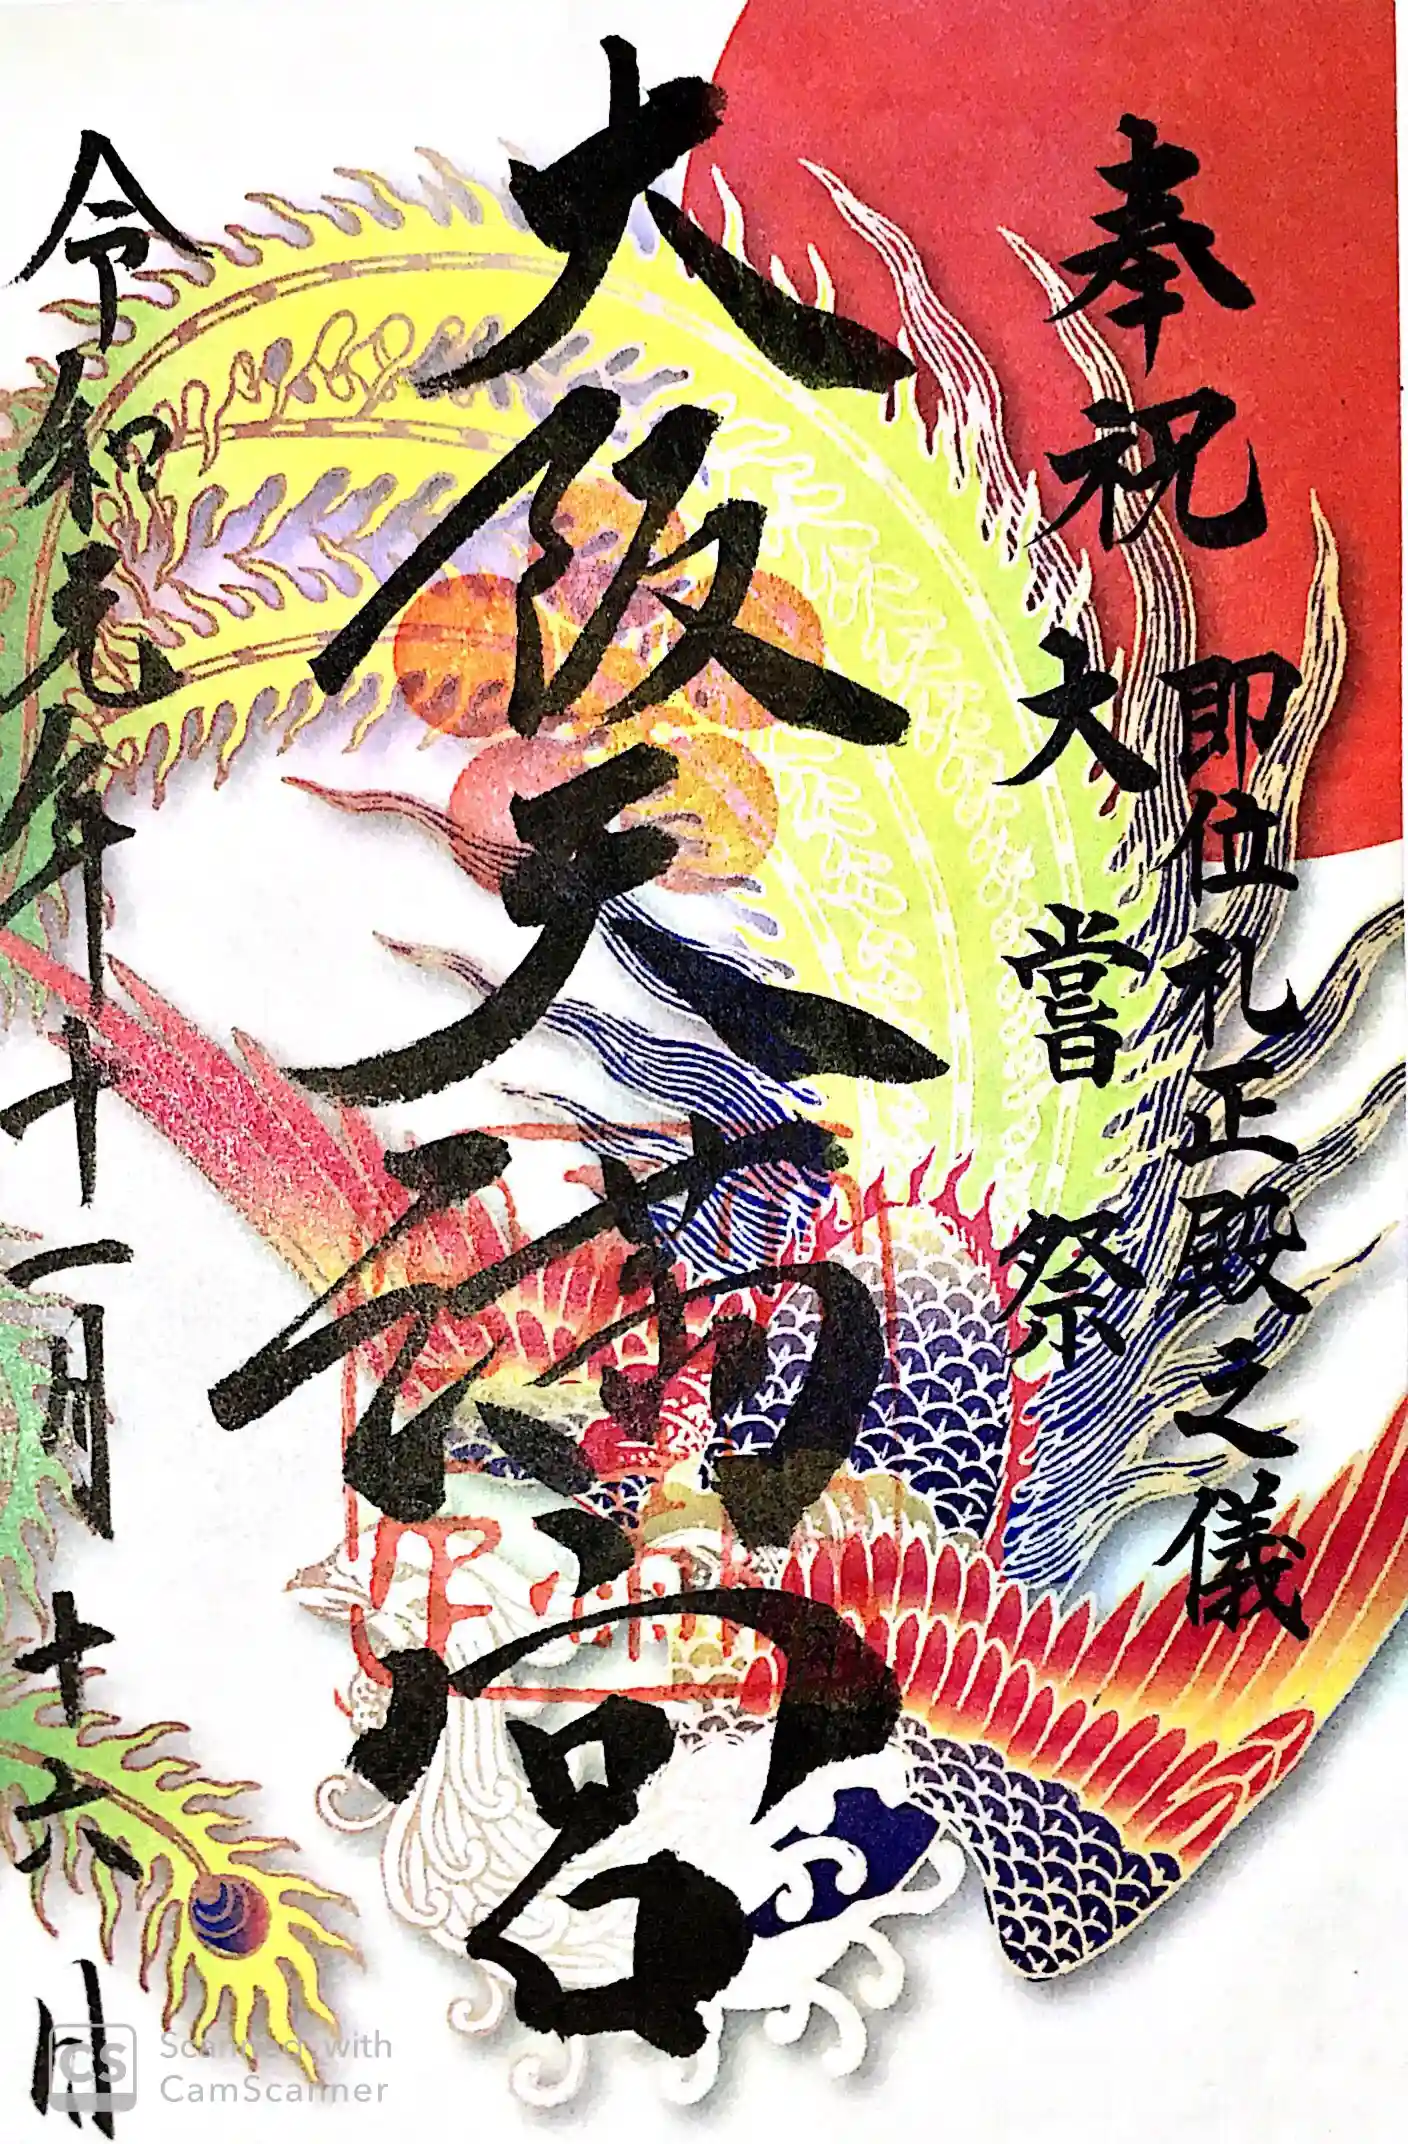 奉祝
即位礼正殿之儀
大嘗祭
大阪天満宮
令和元年十一月十六日
CS
Scanned with
CamScanner